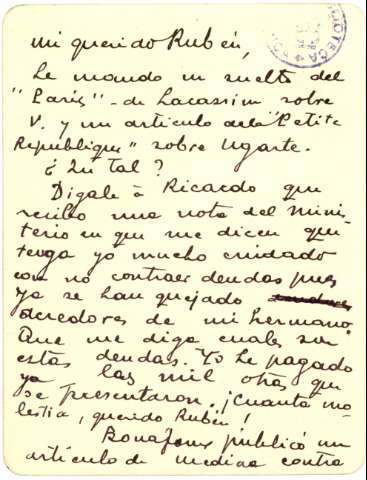 Mi querido Rubén,
Le mando un suelto del
"Paris" - de Lacassin sobre
V. y un articulo de la "Petite
Republique" sobre Ugarte.
¿Qu tal?
Digale á Ricardo que
recibo una nota del Minis-
terio en que me dicen que
tenga yo mucho cuidado
con no contraer deudas pues
ya se han quejado
acredores de mi hermano.
Que me diga cuales son
estas deudas. Yo he pagado
ya las mil otras que
se presentaron. ¡Cuanta mo-
lestia, querido Rubén!
Bonafoux publicó un
articulo de medina contra
BIBLIOTECA